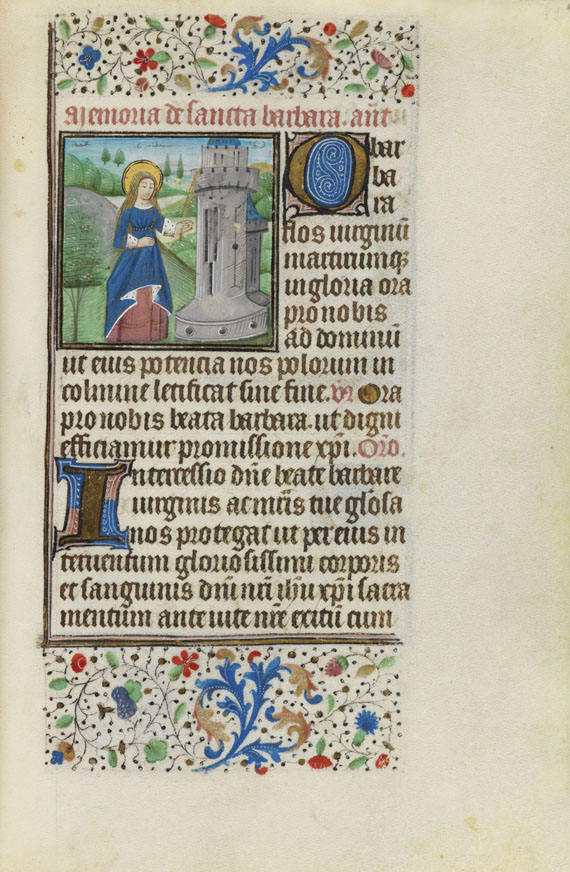 Memoria de sancta barbara. añt
O bar
ba
ra
flos uirginũ
martirumqꝫ
in gloria ora
pro nobis
ad dominũ
ut eius potencia nos polorum in
colmine letificat sine fine. vr̃ Ora
pro nobis beata barbara. ut digni
efficiamur promissione xp̃i. Orõ.
Intercessio dñe beate barbare
uirginis ac mr̃is tue gl̃osa
nos protegat ut per eius in
teruentum gloriosissimi corporis
et sanguinis dñi nr̃i ihũ xp̃i sacra
mentum ante uite nr̃e exitũ cum